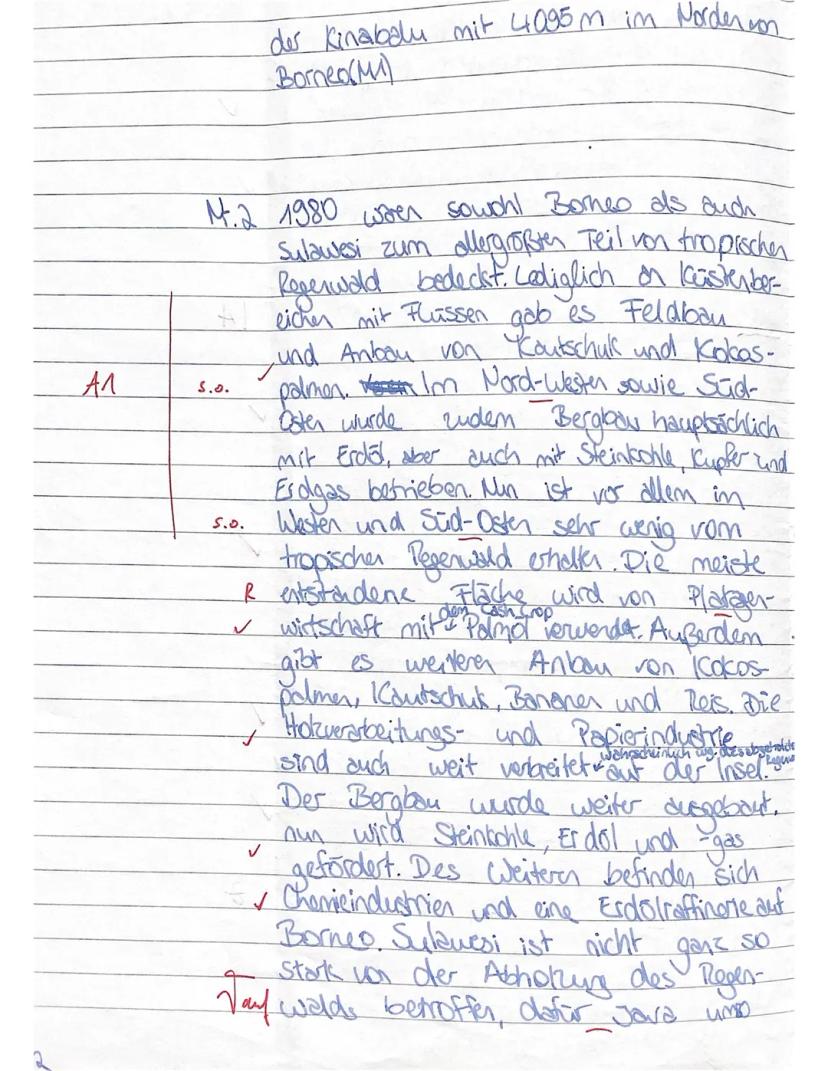 der Kinabalu mit 4095 m im Norden von
Borneo (M1)
Nr. 2 1980 waren sowohl Borneo als auch
Sulawesi zum allergrößten Teil von tropischen
Regenwald bedeckt. Lediglich an Küstenber-
eichen mit Flüssen gab es Feldbau
und Anbau von Kautschuk und Kokos-
A1 s.o. ✓ palmen. Im Nord-Westen sowie Süd-
Osten wurde zudem Bergbau hauptsächlich
mit Erdöl, aber auch mit Steinkohle, Kupfer und
Erdgas betrieben. Nun ist vor allem im
s.o. Westen und Süd-Osten sehr wenig vom
tropischen Regenwald erhalten. Die meiste
R entstandene Fläche wird von Platagen-
✓ wirtschaft mit dem Cash Crop Palmöl verwendet. Außerdem
gibt es weiteren Anbau von Kokos-
palmen, Kautschuk, Bananen und Reis. Die
✓ Holzverarbeitungs- und Papierindustrie
sind auch weit verbreitet wahrscheinlich wg. des abgeholzten auf der Insel.
Der Bergbau wurde weiter ausgebaut,
nun wird Steinkohle, Erdöl und -gas
✓ gefördert. Des Weiteren befinden sich
✓ Chemieindustrien und eine Erdölraffinerie auf
Borneo. Sulawesi ist nicht ganz so
stark von der Abholzung des Regen-
auf walds betroffen, dafür Java und
2